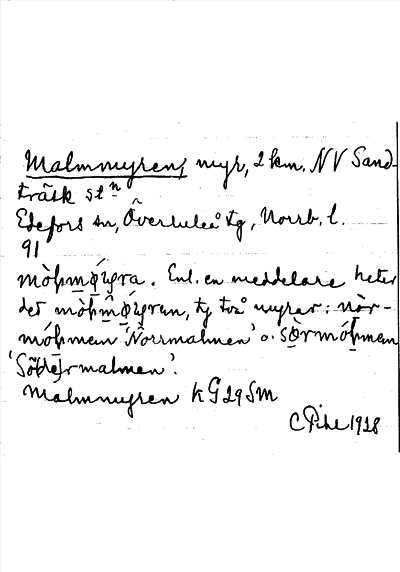 Malmmyren, myr, 2 km. NV Sand-
träsk stn
Edefors sn, Överluleå tg, Norrb. l.
91
Enl. en meddelare heter
det ty två myrar: nòr-
'Norrmalmen' o.
'Sö(de)rmalmen'.
Malmmyren k G29SM
C Pihl 1928